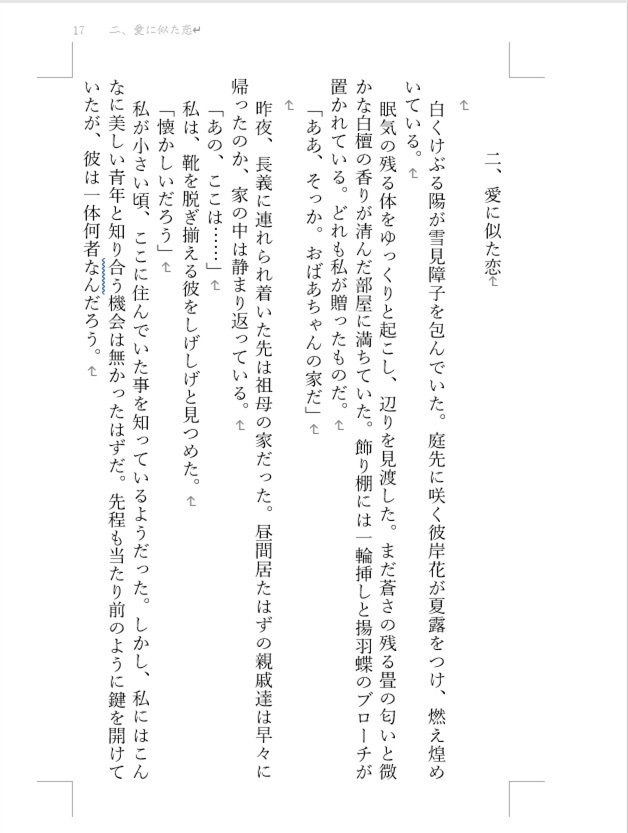 17 二、愛に似た恋
二、愛に似た恋
白くけぶる陽が雪見障子を包んでいた。庭先に咲く彼岸花が夏露をつけ、燃え煌め
いている。
眠気の残る体をゆっくりと起こし、辺りを見渡した。まだ蒼さの残る畳の匂いと微
かな白檀の香りが清んだ部屋に満ちていた。飾り棚には一輪挿しと揚羽蝶のブローチが
置かれている。どれも私が贈ったものだ。
「ああ、そっか。おばあちゃんの家だ」
昨夜、長義に連れられ着いた先は祖母の家だった。昼間居たはずの親戚達は早々に
帰ったのか、家の中は静まり返っている。
「あの、ここは……」
私は、靴を脱ぎ揃える彼をしげしげと見つめた。
「懐かしいだろう」
私が小さい頃、ここに住んでいた事を知っているようだった。しかし、私にはこん
なに美しい青年と知り合う機会は無かったはずだ。先程も当たり前のように鍵を開けて
いたが、彼は一体何者なんだろう。